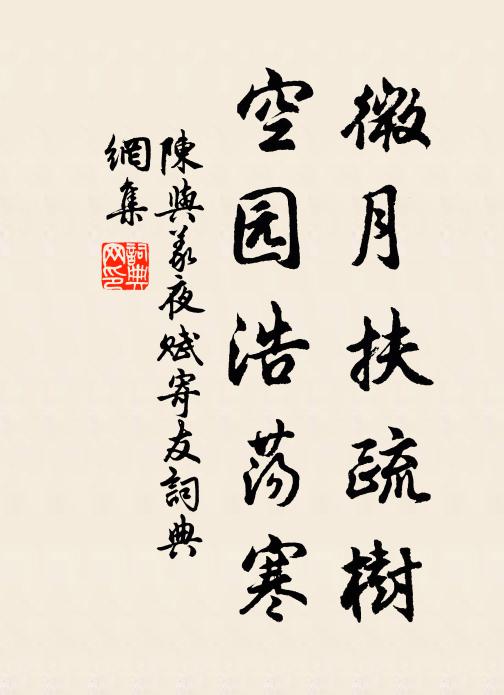 微月扶疏樹
空园浩荡寒
陳與義夜赋寄友詞典
網集
詞典
网印